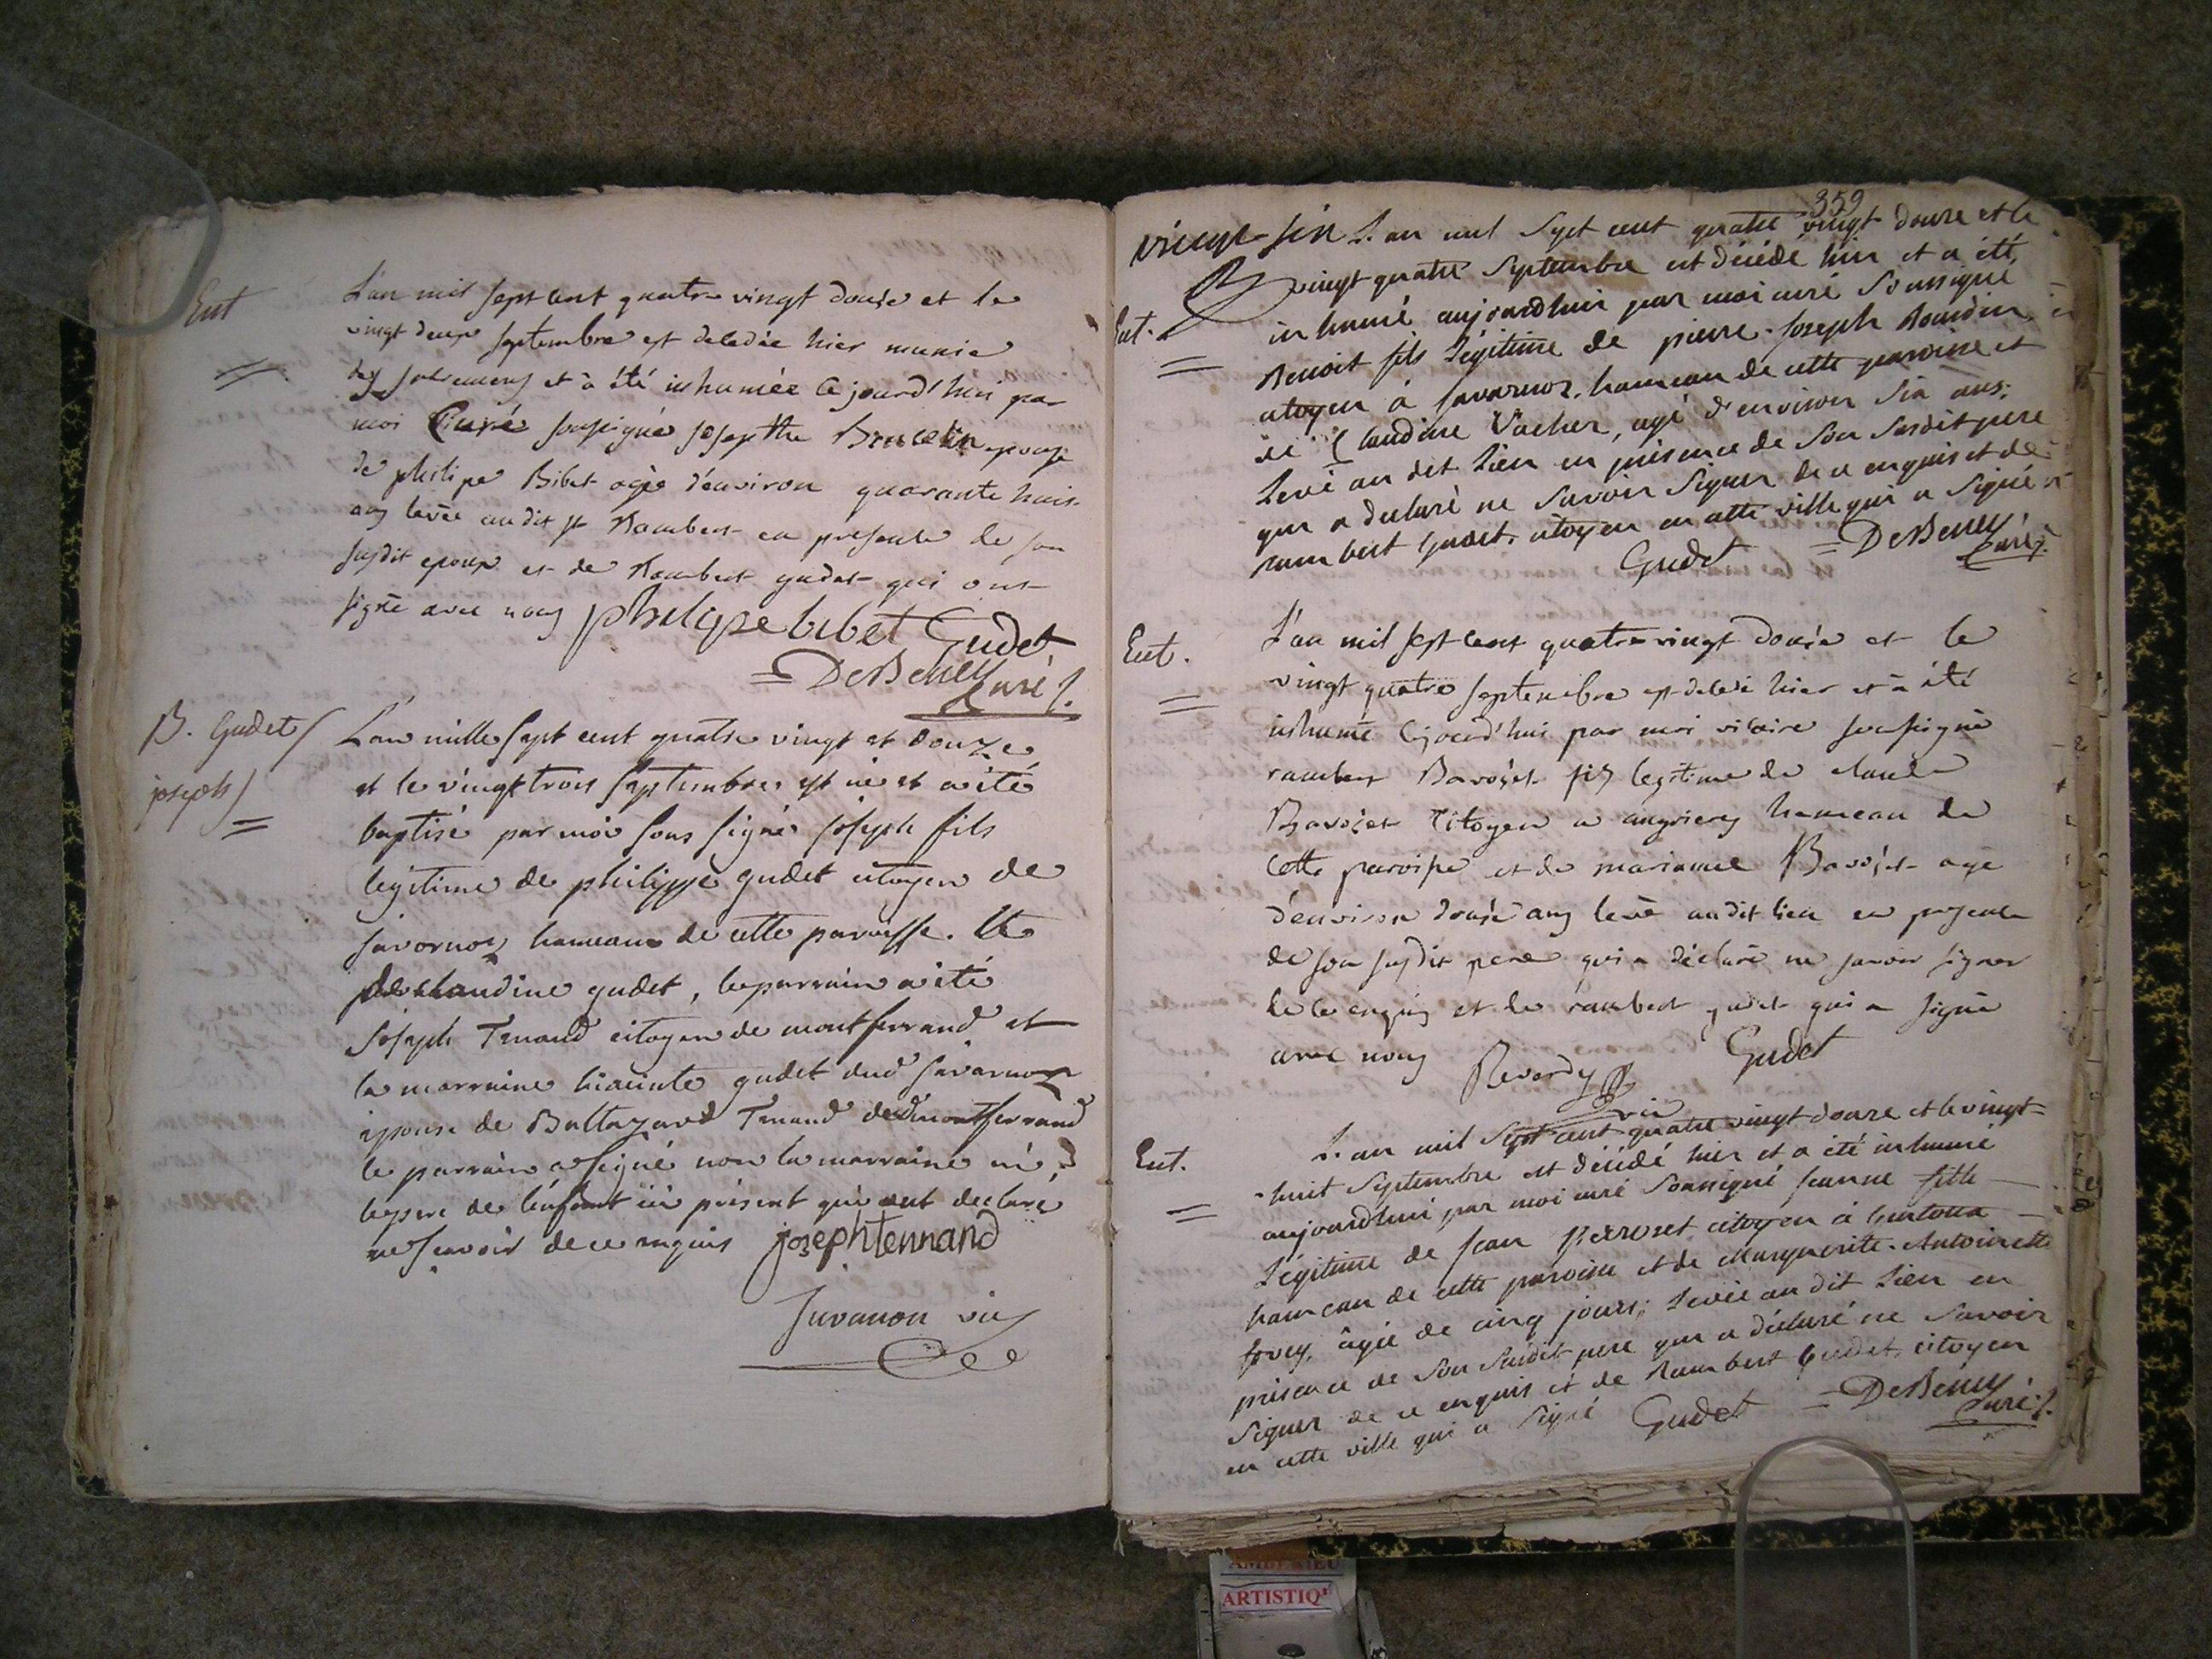 Ent
L'an mil sept cent quatre vingt douze et le
vingt deux septembre est decedée hier munie
des sacremens et à été inhumée ce jourd'hui par
moi Curé soussigné josepthe Brucelin epouse
de philipe Bibet agée d'environ quarante huit
ans levée audit st Rambert en presence de son
susdit epoux et de Rambert gudet qui ont
signé avec nous philipe bibet Gudet
= DeBeney
Curé
B. Gudet
joseph
L'an mille sept cent quatre vingt et douze
et le vingt trois septembre est né et a été
baptisé par moi sous signé joseph fils
legitime de philippe gudet citoyen de
javornoz hameau de cette paroisse. et
de claudine gudet, le parrain a été
joseph Tenand citoyen de montferrand et
la marraine hiacinte gudet dud javarnoz
epouse de Baltazard Tenand dud montferrand
le parrain a signé non la marraine ni
le pere de l'enfant ici présent qui ont declaré
ne scavoir de ce enquis joseph tennand
Juvanon vic
359
vingt-six L'an mil sept cent quatre vingt douze et le
Ent.
vingt quatre Septembre est décédé hier et a été
inhumé aujourdhui par moi curé Soussigné
Benoit fils Légitime de pierre-joseph Bourdin,
citoyen à javarnoz. hameau de cette paroisse et
de Claudine Vacher, agé d'environ Six ans;
Levé au dit Lieu en présence de Son Susdit pere
qui a déclaré ne Savoir Signer de ce enquis et de
rambert gudet. citoyen en cette ville qui a Signé
Gudet = DeBeney
Curé
Ent.
L'an mil sept cent quatre vingt douze et le
vingt quatre septembre est decedé hier et à été
inhumé cejourd'hui par moi vicaire soussigné
rambert Bavozet fils legitime de claude
Bavozet Citoyen a angrieres hameau de
cette paroisse et de marianne Bavozet agé
d'environ douze ans levé audit lieu en presence
de son susdit pere qui a déclaré ne savoir signer
de ce enquis et de rambert gudet qui a signé
avec nous Reverdy Gudet
vic
Ent.
L'an mil Sept cent quatre vingt douze et le vingt=
huit Septembre est décédé hier et a été inhumé
aujourdhui par moi curé Soussigné jeanne fille
Légitime de jean perroset citoyen à
hameau de cette paroisse et de Marguerite-Antoinette
âgée de cinq jours; Levée au dit Lieu en
présence de Son Susdit pere qui a déclaré ne Savoir
Signer de ce enquis et de Rambert Gudet, citoyen
en cette ville qui a Signé Gudet = DeBeney
Curé
ARTISTIQ